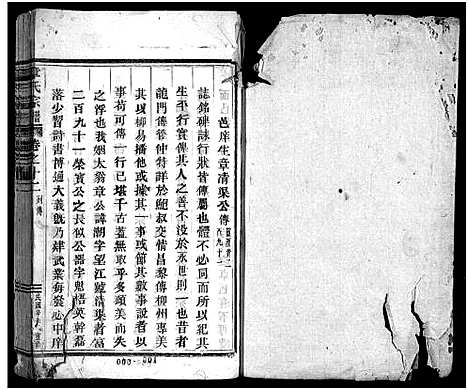 邑庠生章清渠公傳
誌銘碑誄行狀皆傳屬也體不必同而所以紀其
生平行實俾其人之善不致於汞世則一也昔者
龍門傳管仲特詳於鮑叔交情昌黎傳柳州專美
其以柳易播他或摭其一事或節其數事說者以
事苟可傳一行已堪千古蓋無取乎多頌美而失
之浮也我姻太翁章公諱潮字望江號清渠者富
二百九十一榮賓公之長似公器字魁梧英幹磊
落少習詩書博通大義旣乃肄武業每發必中庠
章氏宗譜
卷之十二
列傳
000-001